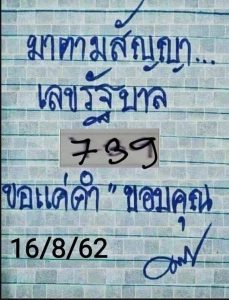 มาตามสัญญา...
เลขรัฐบาล
739
ขอแค่คำ "ขอบคุณ
16/8/62